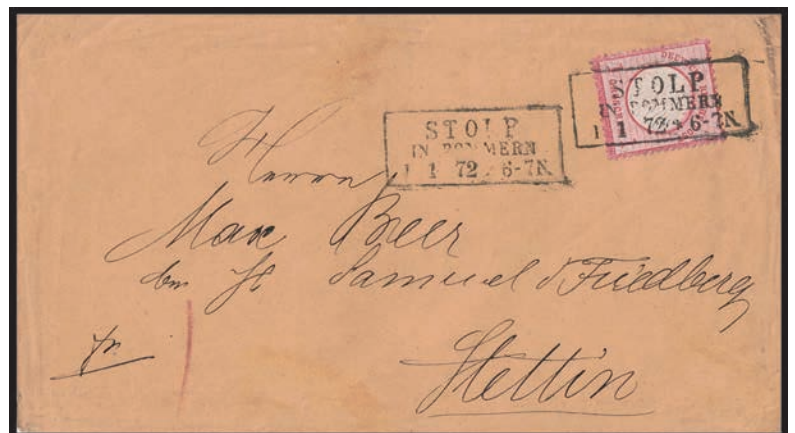 STOLP
IN POMMERN
1 1 72 6-7N.
STOLP
IN POMMERN
1 1 72 6-7N.
Herrn
Max Beer
Samuel Friedberg
fr
Stettin